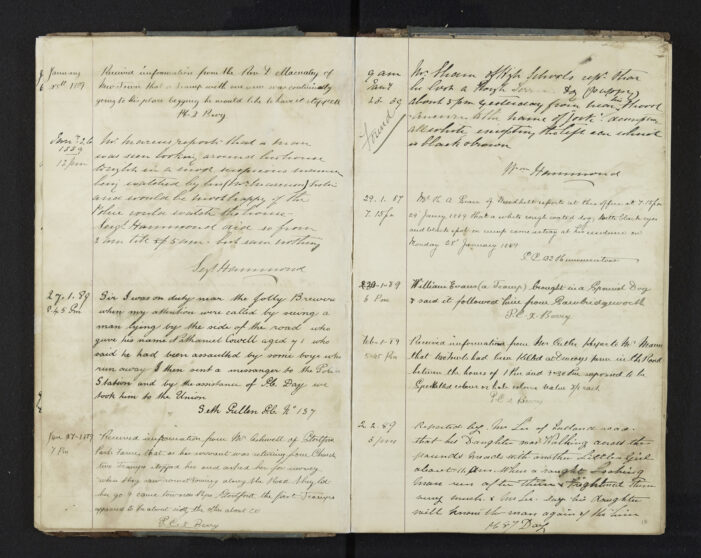 January
1889
Received information from the Rev. D. Macnatey of
New Town that a Tramp with one arm was continually
going to his place begging he would like to have it stopped
Pc 2 Bovy
Jan 26
1889
12 pm
Mr. Marcus reports that a man
was seen looking around his house
tonight in a most suspicious manner
being watched by
and would be most happy if the
Police would watch the house.
Sergt Hammond did so from
2 am till 5 am. but saw nothing
Sergt Hammond
27.1.89
8.45 Pm
Sir I was on duty near the Jolly Brewers
when my attention were called by seeing a
man lying by the side of the road who
gave his name Nathaniel Cowell aged 71 who
said he had been assaulted by some boys who
run away I then sent a messanger to the Police
Station and by the assistance of Pc. Day we
took him to the Union
Seth Pullen Pc. No 137
Jan 27-1889
7 Pm
Received information from Mr Ashwell of Stortford
Park Farm, that as his servant was returning from Church
two Tramps stopped her and asked her for money
when they saw some one coming along the Road. They let
her go & came towards Bps Stortford the first Tramp
appeared to be about 60, the other about 20
P.C. 2 Bovy
9 am
Jany
28. 89
Found
Mr. Sham of High Schools rept. that
he lost a Rough Terrier Dog (puppy)
about 5 pm yesterday from near his school
answers to the name of Jock. description
all white excepting the left ear which
is black & brown
Hammond
29.1.89
7.15 Pm
Mr. R. A. Evans of reports at this office at 7.15 Pm
29 Jany 1889 that a white rough coated dog, with black eyes
and black spot on rump came astray at his residence on
Monday 28th January 1889
P.C. 132
30-1-89
6 Pm
William Evans (a Tramp) brought in a Spaniel Dog
& said it followed him from Sawbridgeworth
P.C. 2 Bovy
Feb-1-89
Received information from Mr Cutler Keeper to Mr.
that two had been killed in the Road
between the hours of 1 Pm and supposed to be
P.C. 2 Bovy
2.2.89
5 pm
Reported by. Mr Lee of
that his Daughter was Walking across the
pounds mead with another Little Girl
about 4 pm. When a rought Looking
man run after them & Frightened them
very much & Mr Lee says his daughter
will know the man again if she sees him
Pc 87 Day